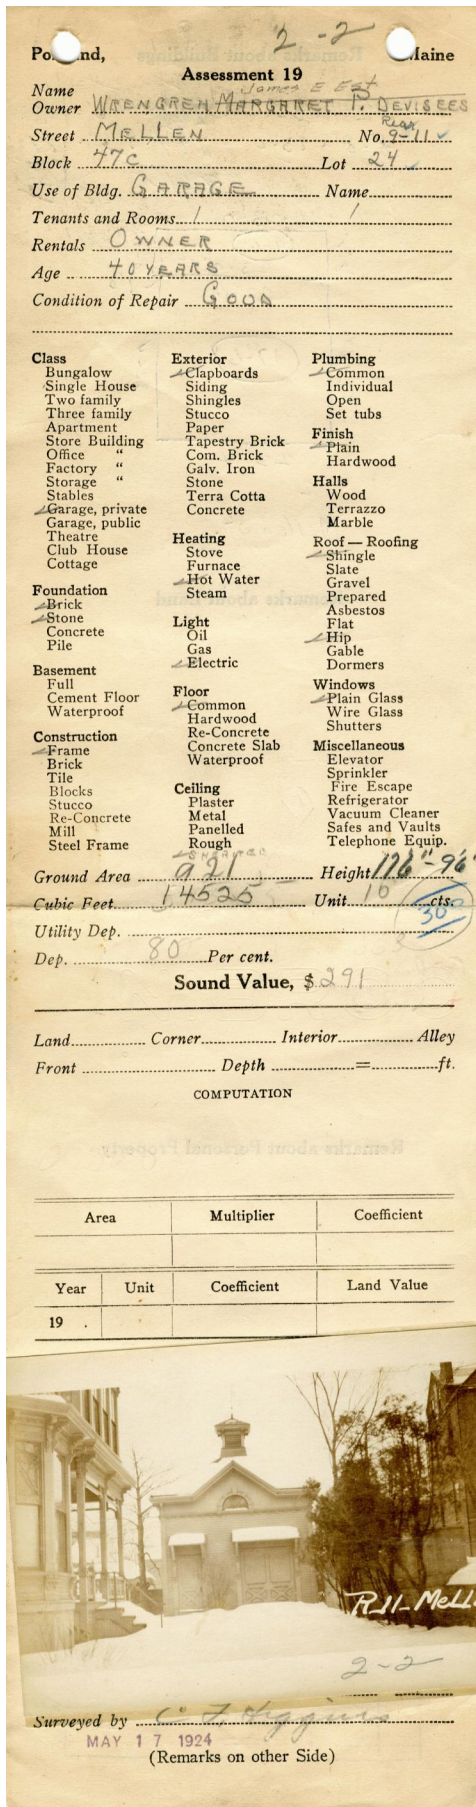 2-2
Portland, Maine
Assessment 19
James E Est
Name
Owner WRENGREN MARGARET P. DEVISEES
Rear
Street MELLEN No. 9-11
Block 47C Lot 24
Use of Bldg. GARAGE Name
Tenants and Rooms 1 1
Rentals OWNER
Age 40 YEARS
Condition of Repair GOOD
Class
Bungalow
Single House
Two family
Three family
Apartment
Store Building
Office "
Factory "
Storage "
Stables
Garage, private
Garage, public
Theatre
Club House
Cottage
Foundation
Brick
Stone
Concrete
Pile
Basement
Full
Cement Floor
Waterproof
Construction
Frame
Brick
Tile
Blocks
Stucco
Re-Concrete
Mill
Steel Frame
Exterior
Clapboards
Siding
Shingles
Stucco
Paper
Tapestry Brick
Com. Brick
Galv. Iron
Stone
Terra Cotta
Concrete
Heating
Stove
Furnace
Hot Water
Steam
Light
Oil
Gas
Electric
Floor
Common
Hardwood
Re-Concrete
Concrete Slab
Waterproof
Ceiling
Plaster
Metal
Panelled
Rough
SHEATHED
Plumbing
Common
Individual
Open
Set tubs
Finish
Plain
Hardwood
Halls
Wood
Terrazzo
Marble
Roof — Roofing
Shingle
Slate
Gravel
Prepared
Asbestos
Flat
Hip
Gable
Dormers
Windows
Plain Glass
Wire Glass
Shutters
Miscellaneous
Elevator
Sprinkler
Fire Escape
Refrigerator
Vacuum Cleaner
Safes and Vaults
Telephone Equip.
Ground Area 921 Height 17'6"-9'6"
Cubic Feet 14525 Unit 10 cts.
30
Utility Dep.
Dep. 80 Per cent.
Sound Value, $ 291
Land Corner Interior Alley
Front Depth = ft.
COMPUTATION
Area Multiplier Coefficient
Year Unit Coefficient Land Value
19 .
R11-MELL
2-2
Surveyed by C F Higgins
MAY 17 1924
(Remarks on other Side)